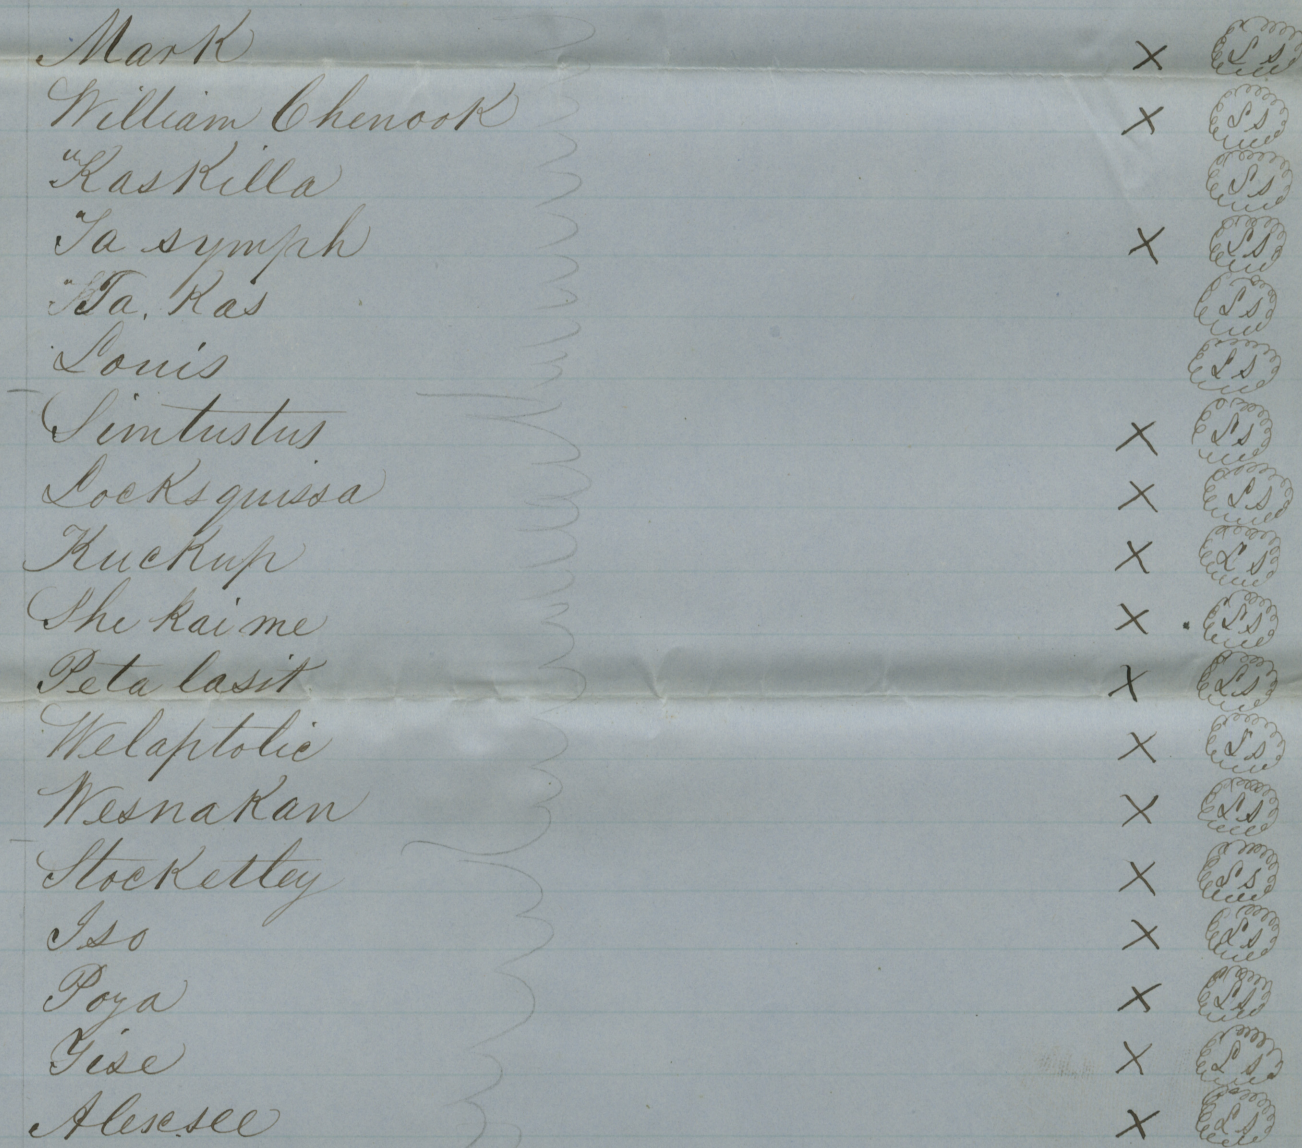 Mark X L S
William Chenook X L S
"Kaskilla L S
Ta symph X L S
Ta. Kas L S
Louis L S
Simtustus X L S
Locksquissa X L S
Kuckup X L S
She kaime X L S
Peta lasit X L S
Welaptolic X L S
Wesnakan X L S
Stocketley X L S
Iso X L S
Poya X L S
Yise X L S
Alexsee X L S